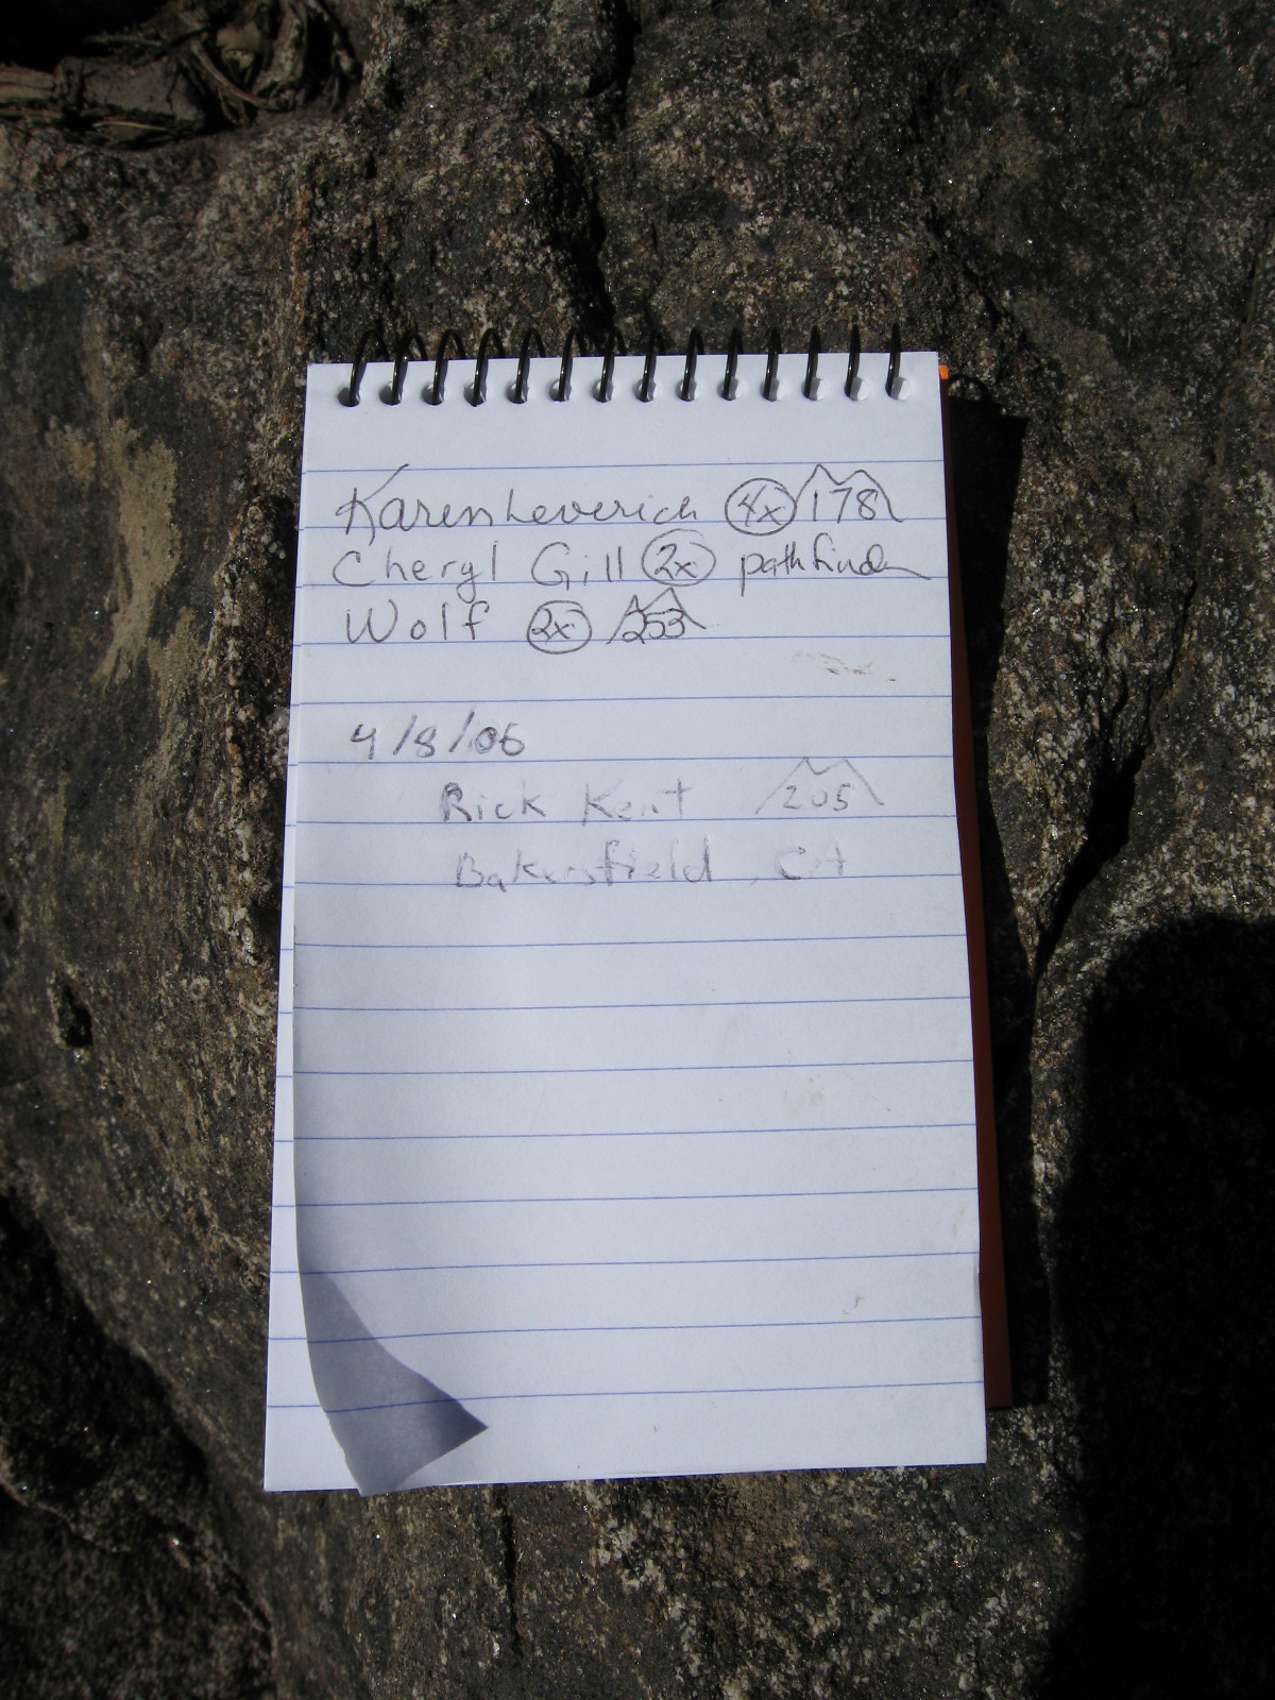 Karen Leverich 4x 178
Cheryl Gill 2x pathfinder
Wolf 2x 253
4/8/06
Rick Kent 205
Bakersfield, CA